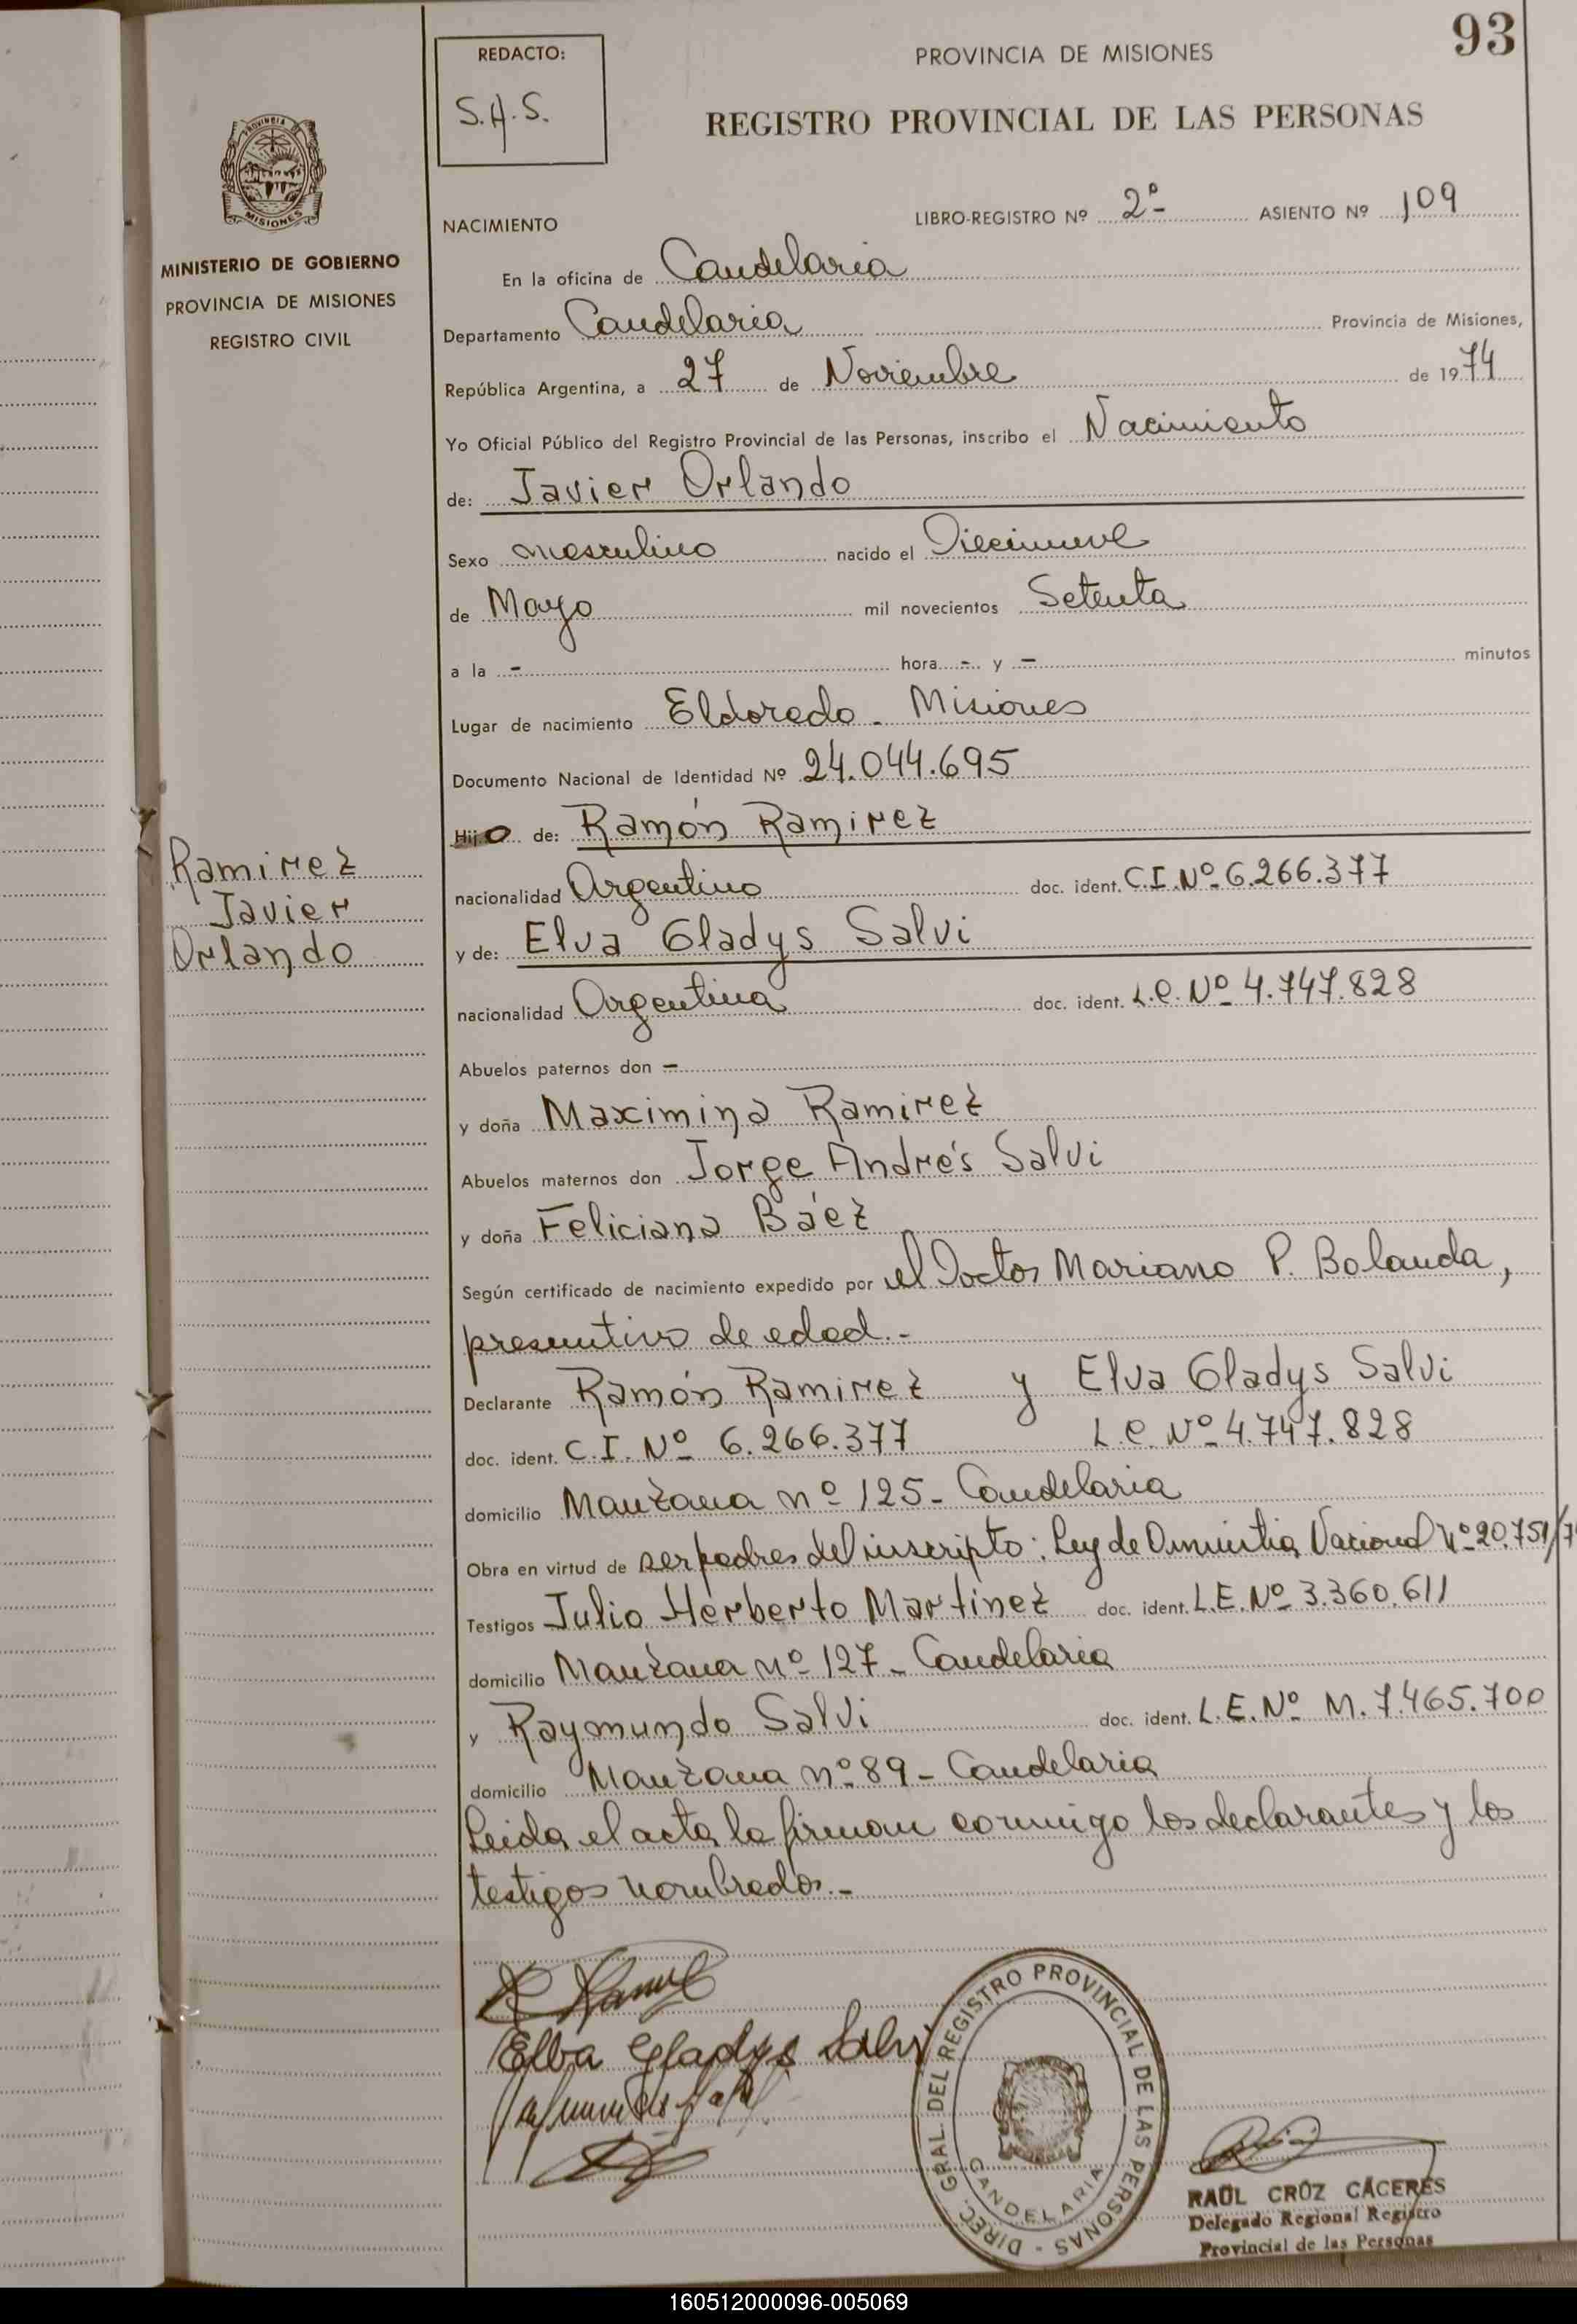 93
REDACTO:
S.A.S.
PROVINCIA DE MISIONES
REGISTRO PROVINCIAL DE LAS PERSONAS
PROVINCIA
MISIONES
MINISTERIO DE GOBIERNO
PROVINCIA DE MISIONES
REGISTRO CIVIL
NACIMIENTO LIBRO-REGISTRO Nº 2º ASIENTO Nº 109
En la oficina de Candelaria
Departamento Candelaria Provincia de Misiones,
República Argentina, a 27 de Noviembre de 1974
Yo Oficial Público del Registro Provincial de las Personas, inscribo el Nacimiento
de: Javier Orlando
Sexo masculino nacido el Diecinueve
de Mayo mil novecientos Setenta
a la - hora - y - minutos
Lugar de nacimiento Eldorado - Misiones
Documento Nacional de Identidad Nº 24.044.695
Hijo de: Ramón Ramirez
nacionalidad Argentino doc. ident. C.I. Nº 6.266.377
y de: Elva Gladys Salvi
nacionalidad Argentina doc. ident. L.C. Nº 4.747.828
Ramirez
Javier
Orlando
Abuelos paternos don -
y doña Maximina Ramirez
Abuelos maternos don Jorge Andrés Salvi
y doña Feliciana Báez
Según certificado de nacimiento expedido por el Doctor Mariano P. Bolanda,
presuntivo de edad.-
Declarante Ramón Ramirez y Elva Gladys Salvi
doc. ident. C.I. Nº 6.266.377 L.C. Nº 4.747.828
domicilio Manzana nº 125 - Candelaria
Obra en virtud de ser padres del inscripto: Ley de Amnistia Nacional Nº 20.751/7
Testigos Julio Herberto Martinez doc. ident. L.E. Nº 3.360.611
domicilio Manzana nº 127 - Candelaria
y Raymundo Salvi doc. ident. L.E. Nº M. 7.465.700
domicilio Manzana nº 89 - Candelaria
Leida el acta la firman conmigo los declarantes y los
testigos nombrados.-
Elba Gladys Salvi
DIREC. GRAL. DEL REGISTRO PROVINCIAL DE LAS PERSONAS -
CANDELARIA
RAUL CRUZ CACERES
Delegado Regional Registro
Provincial de las Personas
160512000096-005069